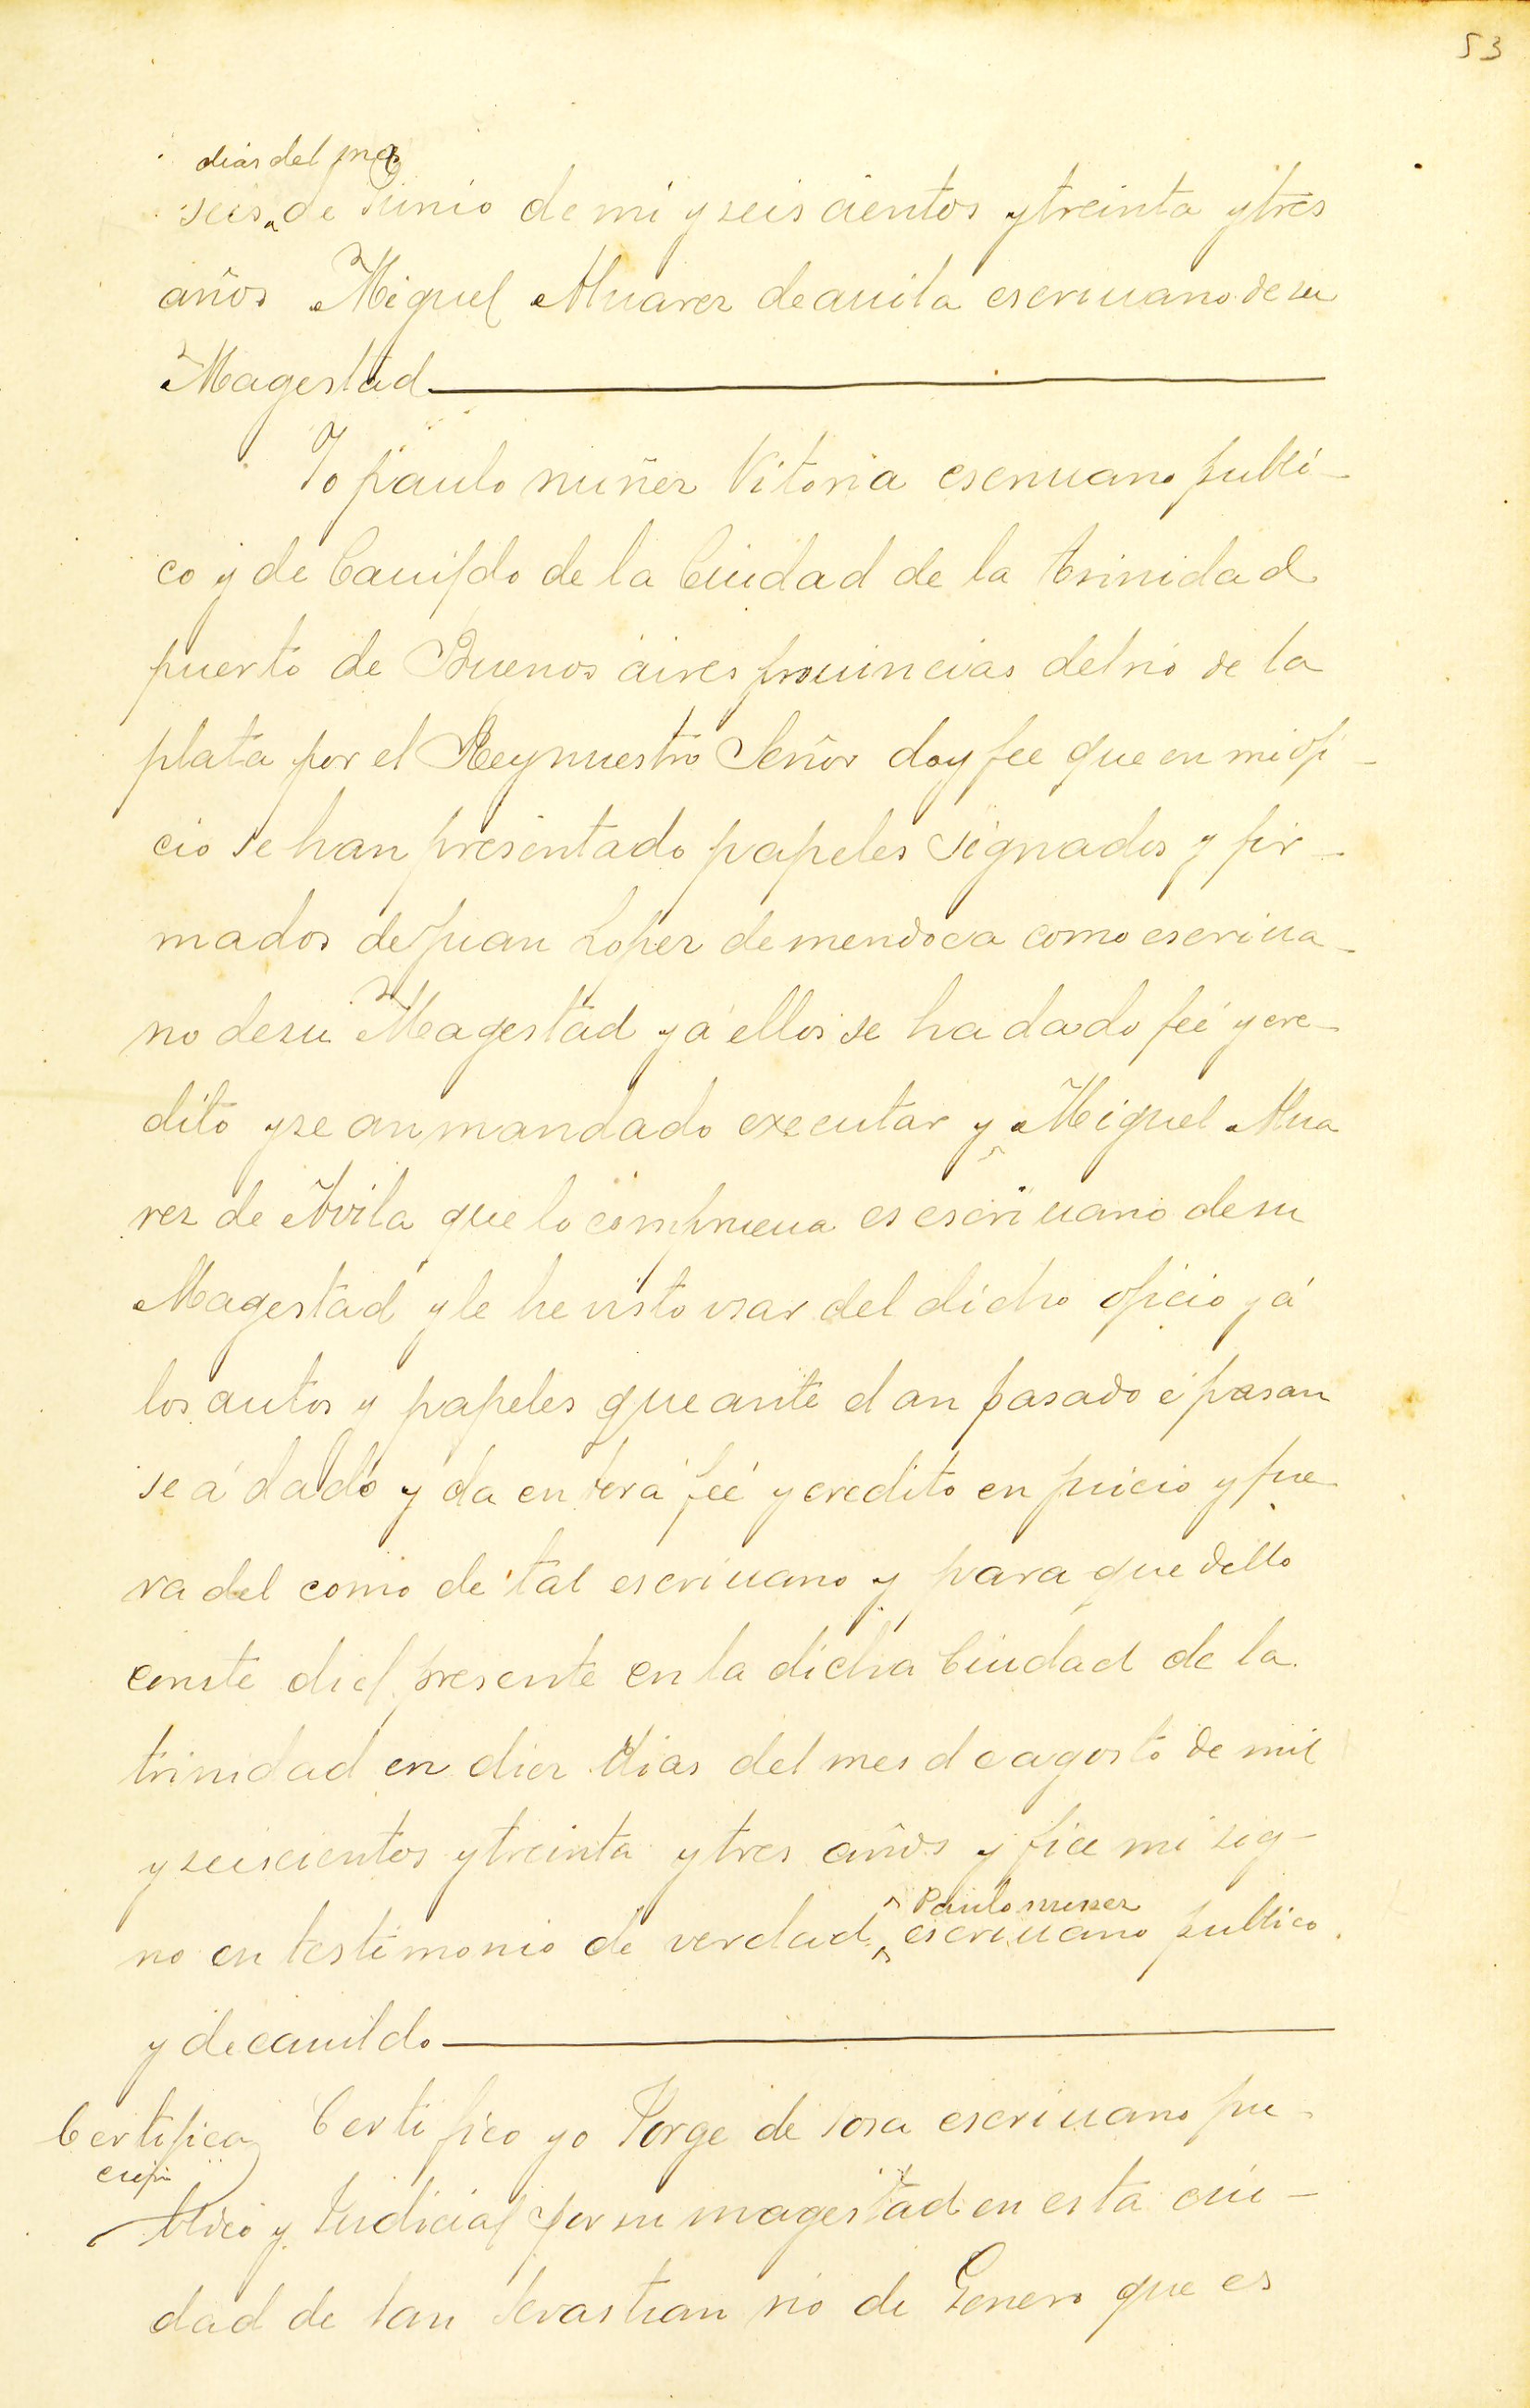 53
dias del mes
seis de Junio de mi y seis cientos y treinta y tres
años Miguel Aluarez de auila escriuano de su
Magestad
Yo paulo nuñez Vitoria escriuano publi-
co y de Cauildo de la Ciudad de la trinidad
puerto de Buenos aires prouincias del rio de la
plata por el Rey nuestro Señor doy fee que en mi ofi-
cio se han presentado papeles signados y fir-
mados de Juan Lopez de mendoca como escriua-
no de su Magestad y á ellos se ha dado feé y cre-
dito y se an mandado executar y Miguel Alua
rez de Avila que lo comprueua es escriuano de su
Magestad y le he visto usar del dicho oficio y á
los autos y papeles que ante el an pasado é pasan
se á dado y da entera feé y credito en juicio y fue
ra del como de tal escriuano y para que dello
conste di el presente en la dicha Ciudad de la
trinidad en diez dias del mes de agosto de mil
y seiscientos y treinta y tres años y fice mi sig-
Paulo nunez
no en testimonio de verdad escriuano publico
y de cauildo
Certifica Certifico yo Jorge de sosa escriuano pu-
blico y Judicial por su magestad en esta ciu-
dad de san Sevastian rio de Genero que es